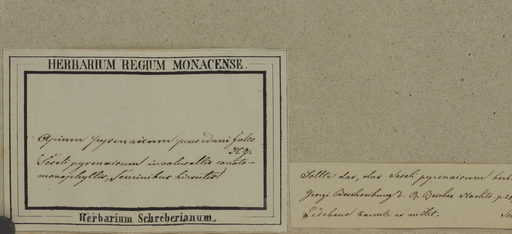 HERBARIUM REGIUM MONACENSE.
Apium pyrenaicum peucedani folio
Seseli pyrenaicum involucellis connato-
monophyllis, Seminibus hirsutis
Herbarium Schreberianum.
Sollte das, das Seseli pyrenaicum
Georgi Beschreibung d. R. Reiches Nachtr. p.
Ledebour kannte es nicht.